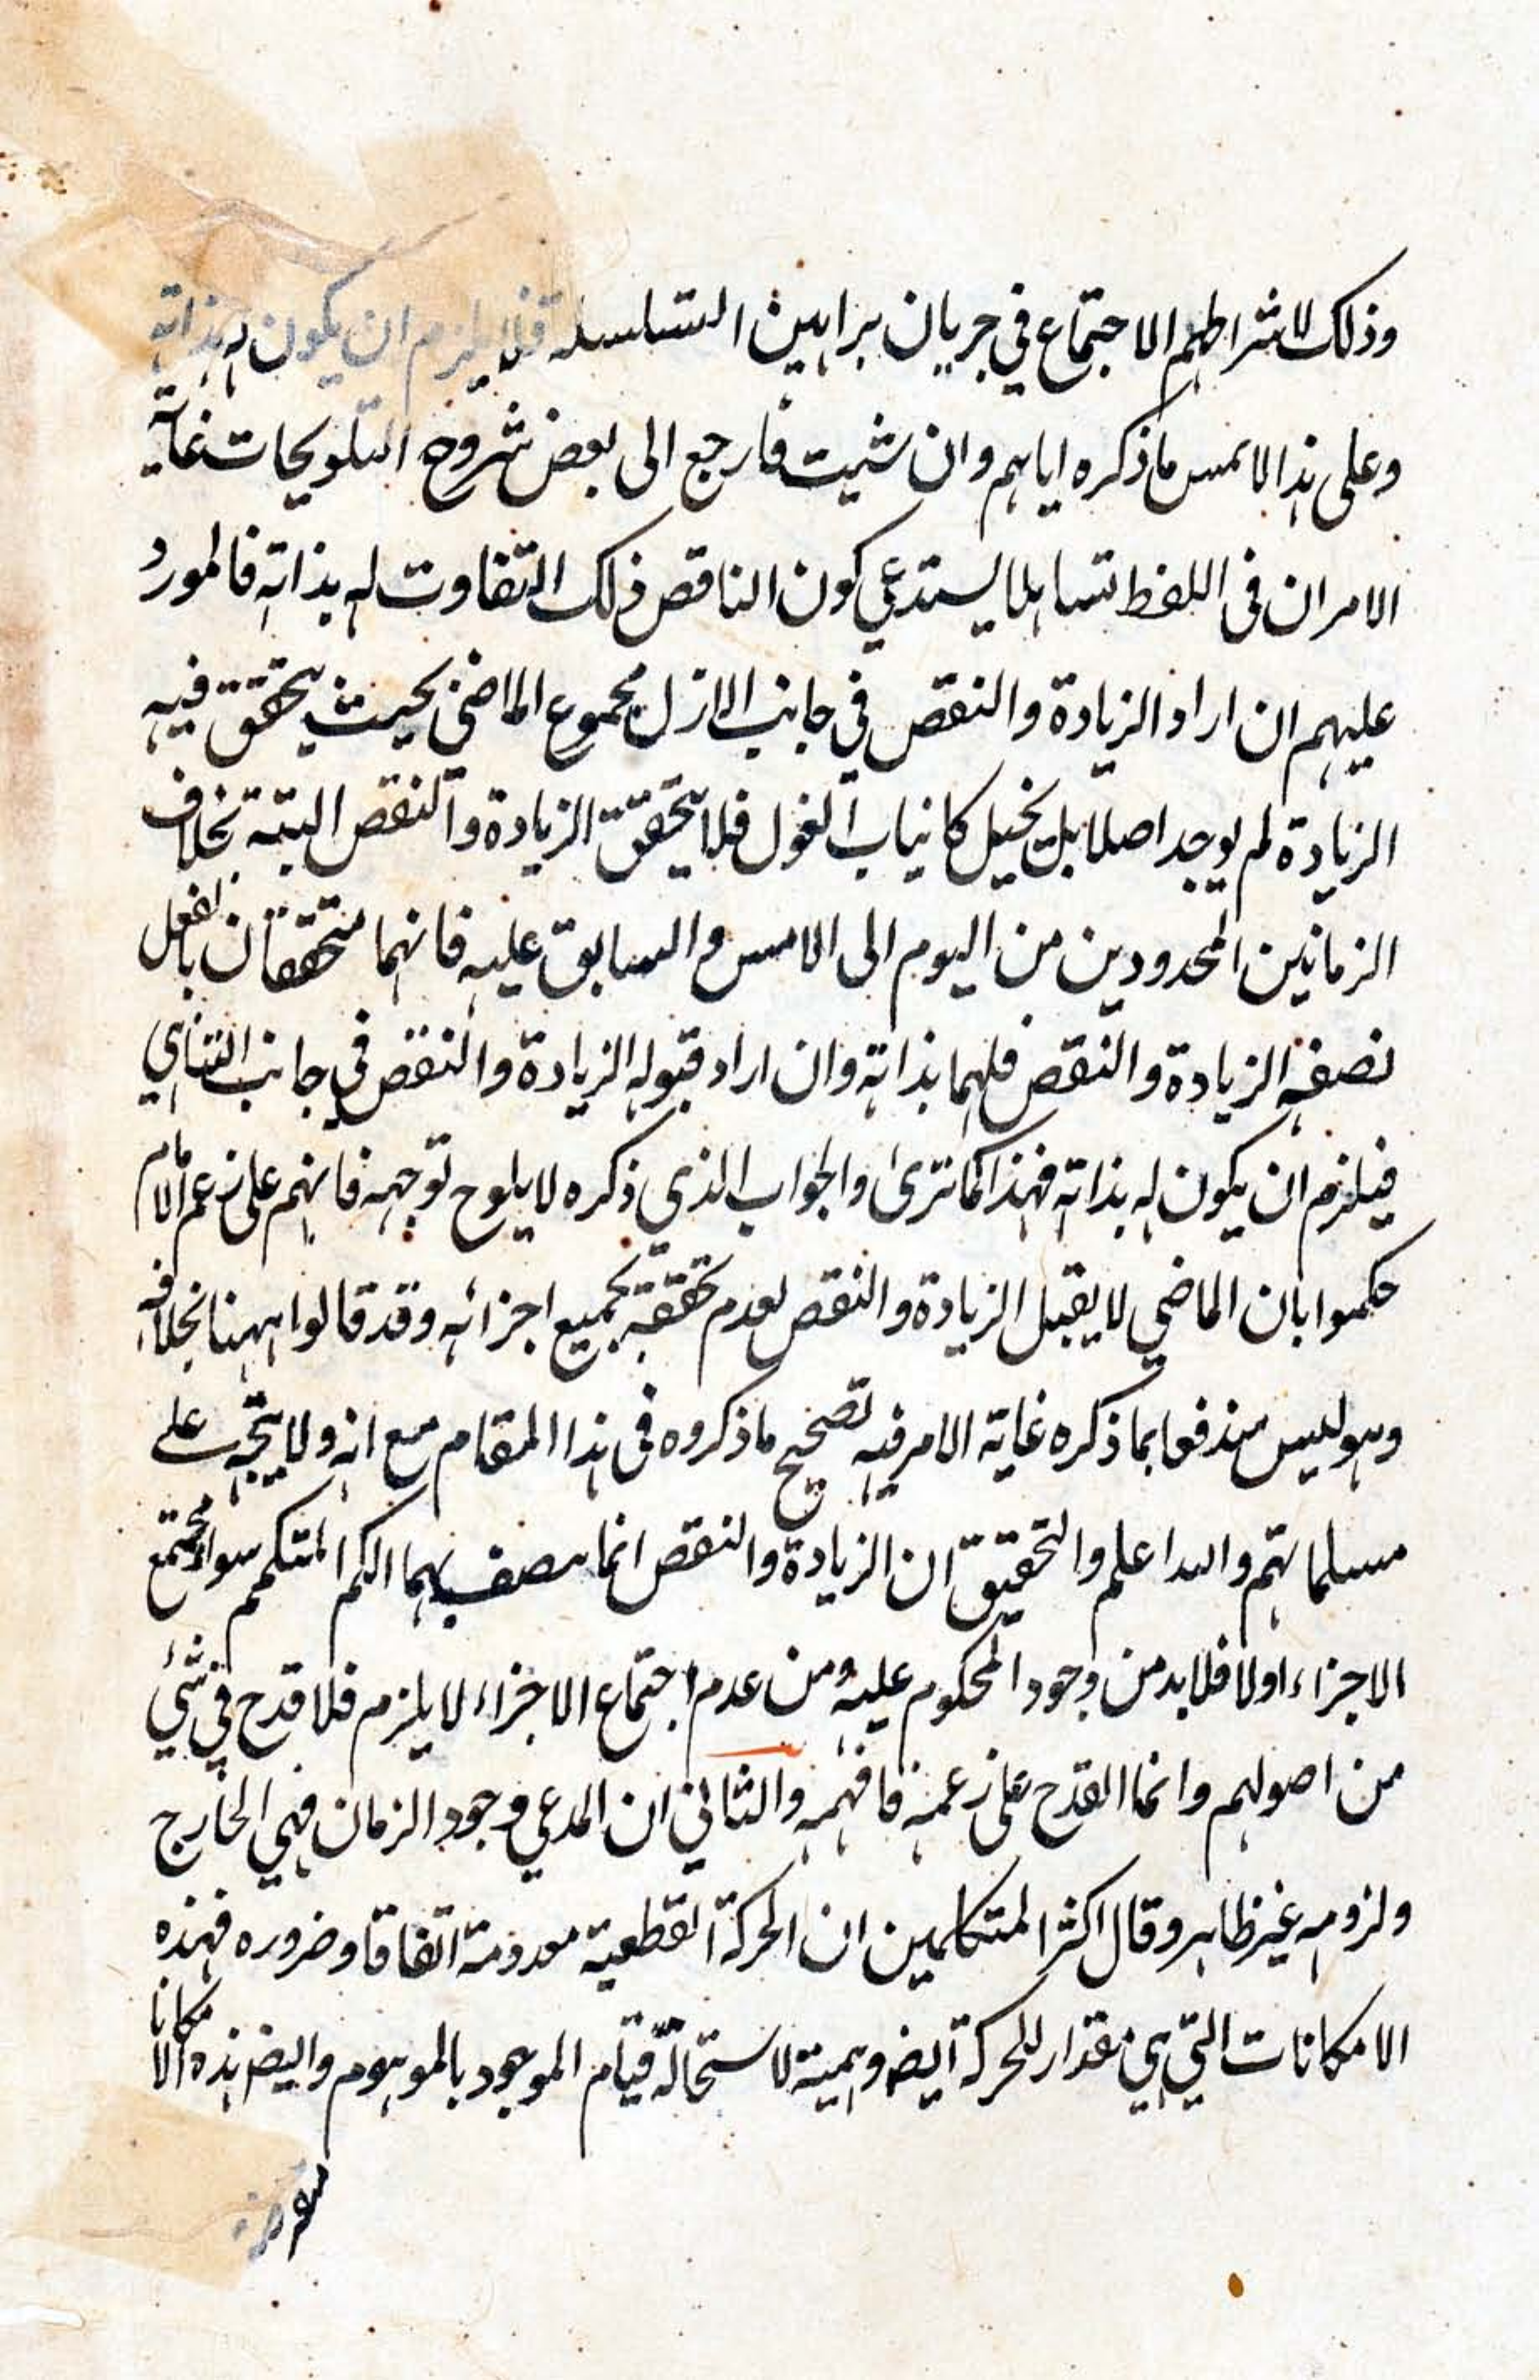 وذلك لاشتراطهم الاجتماع في جريان براهين التسلسل فلا يلزم ان يكون له بذاته
وعلى هذا لا يمس ما ذكره اياهم وان شئت فارجع الى بعض شروح التلويحات غاية
الامر ان في اللفظ تساهلا يستدعي كون الناقص ذلك التفاوت له بذاته فالمورد
عليهم ان اراد الزيادة والنقص في جانب الازل مجموع الماضي بحيث يتحقق فيه
الزيادة لم يوجد اصلا بل يخيل كانياب الغول فلا يتحقق الزيادة والنقص البتة بخلاف
الزمانين المحدودين من اليوم الى الامس والسابق عليه فانهما متحققان بالفعل
نصفه الزيادة والنقص فلهما بذاته وان اراد قبوله الزيادة والنقص في جانب التناهي
فيلزم ان يكون له بذاته فهذا كما ترى والجواب الذي ذكره لا يلوح توجهه فانهم على زعم الامام
حكموا بان الماضي لا يقبل الزيادة والنقص لعدم تحققه بجميع اجزائه وقد قالوا ههنا بخلافه
وهو ليس مندفعا بما ذكره غاية الامر فيه تصحيح ما ذكروه في هذا المقام مع انه ولا يتجه على
مسلماتهم والله اعلم والتحقيق ان الزيادة والنقص انما يتصف بهما الكم المتكمم سواء مجتمع
الاجزاء اولا فلا بد من وجود المحكوم عليه ومن عدم اجتماع الاجزاء لا يلزم فلا قدح في شئ
من اصولهم وانما القدح على زعمه فافهمه والثاني ان المدعي وجود الزمان فهي الخارج
ولزومه غير ظاهر وقال اكثر المتكلمين ان الحركة القطعية معدومة اتفاقا وضروره فهذه
الامكانات التي هي مقدار للحركة ايض وهمية لاستحالة قيام الموجود بالموهوم وايض هذه الامكانا